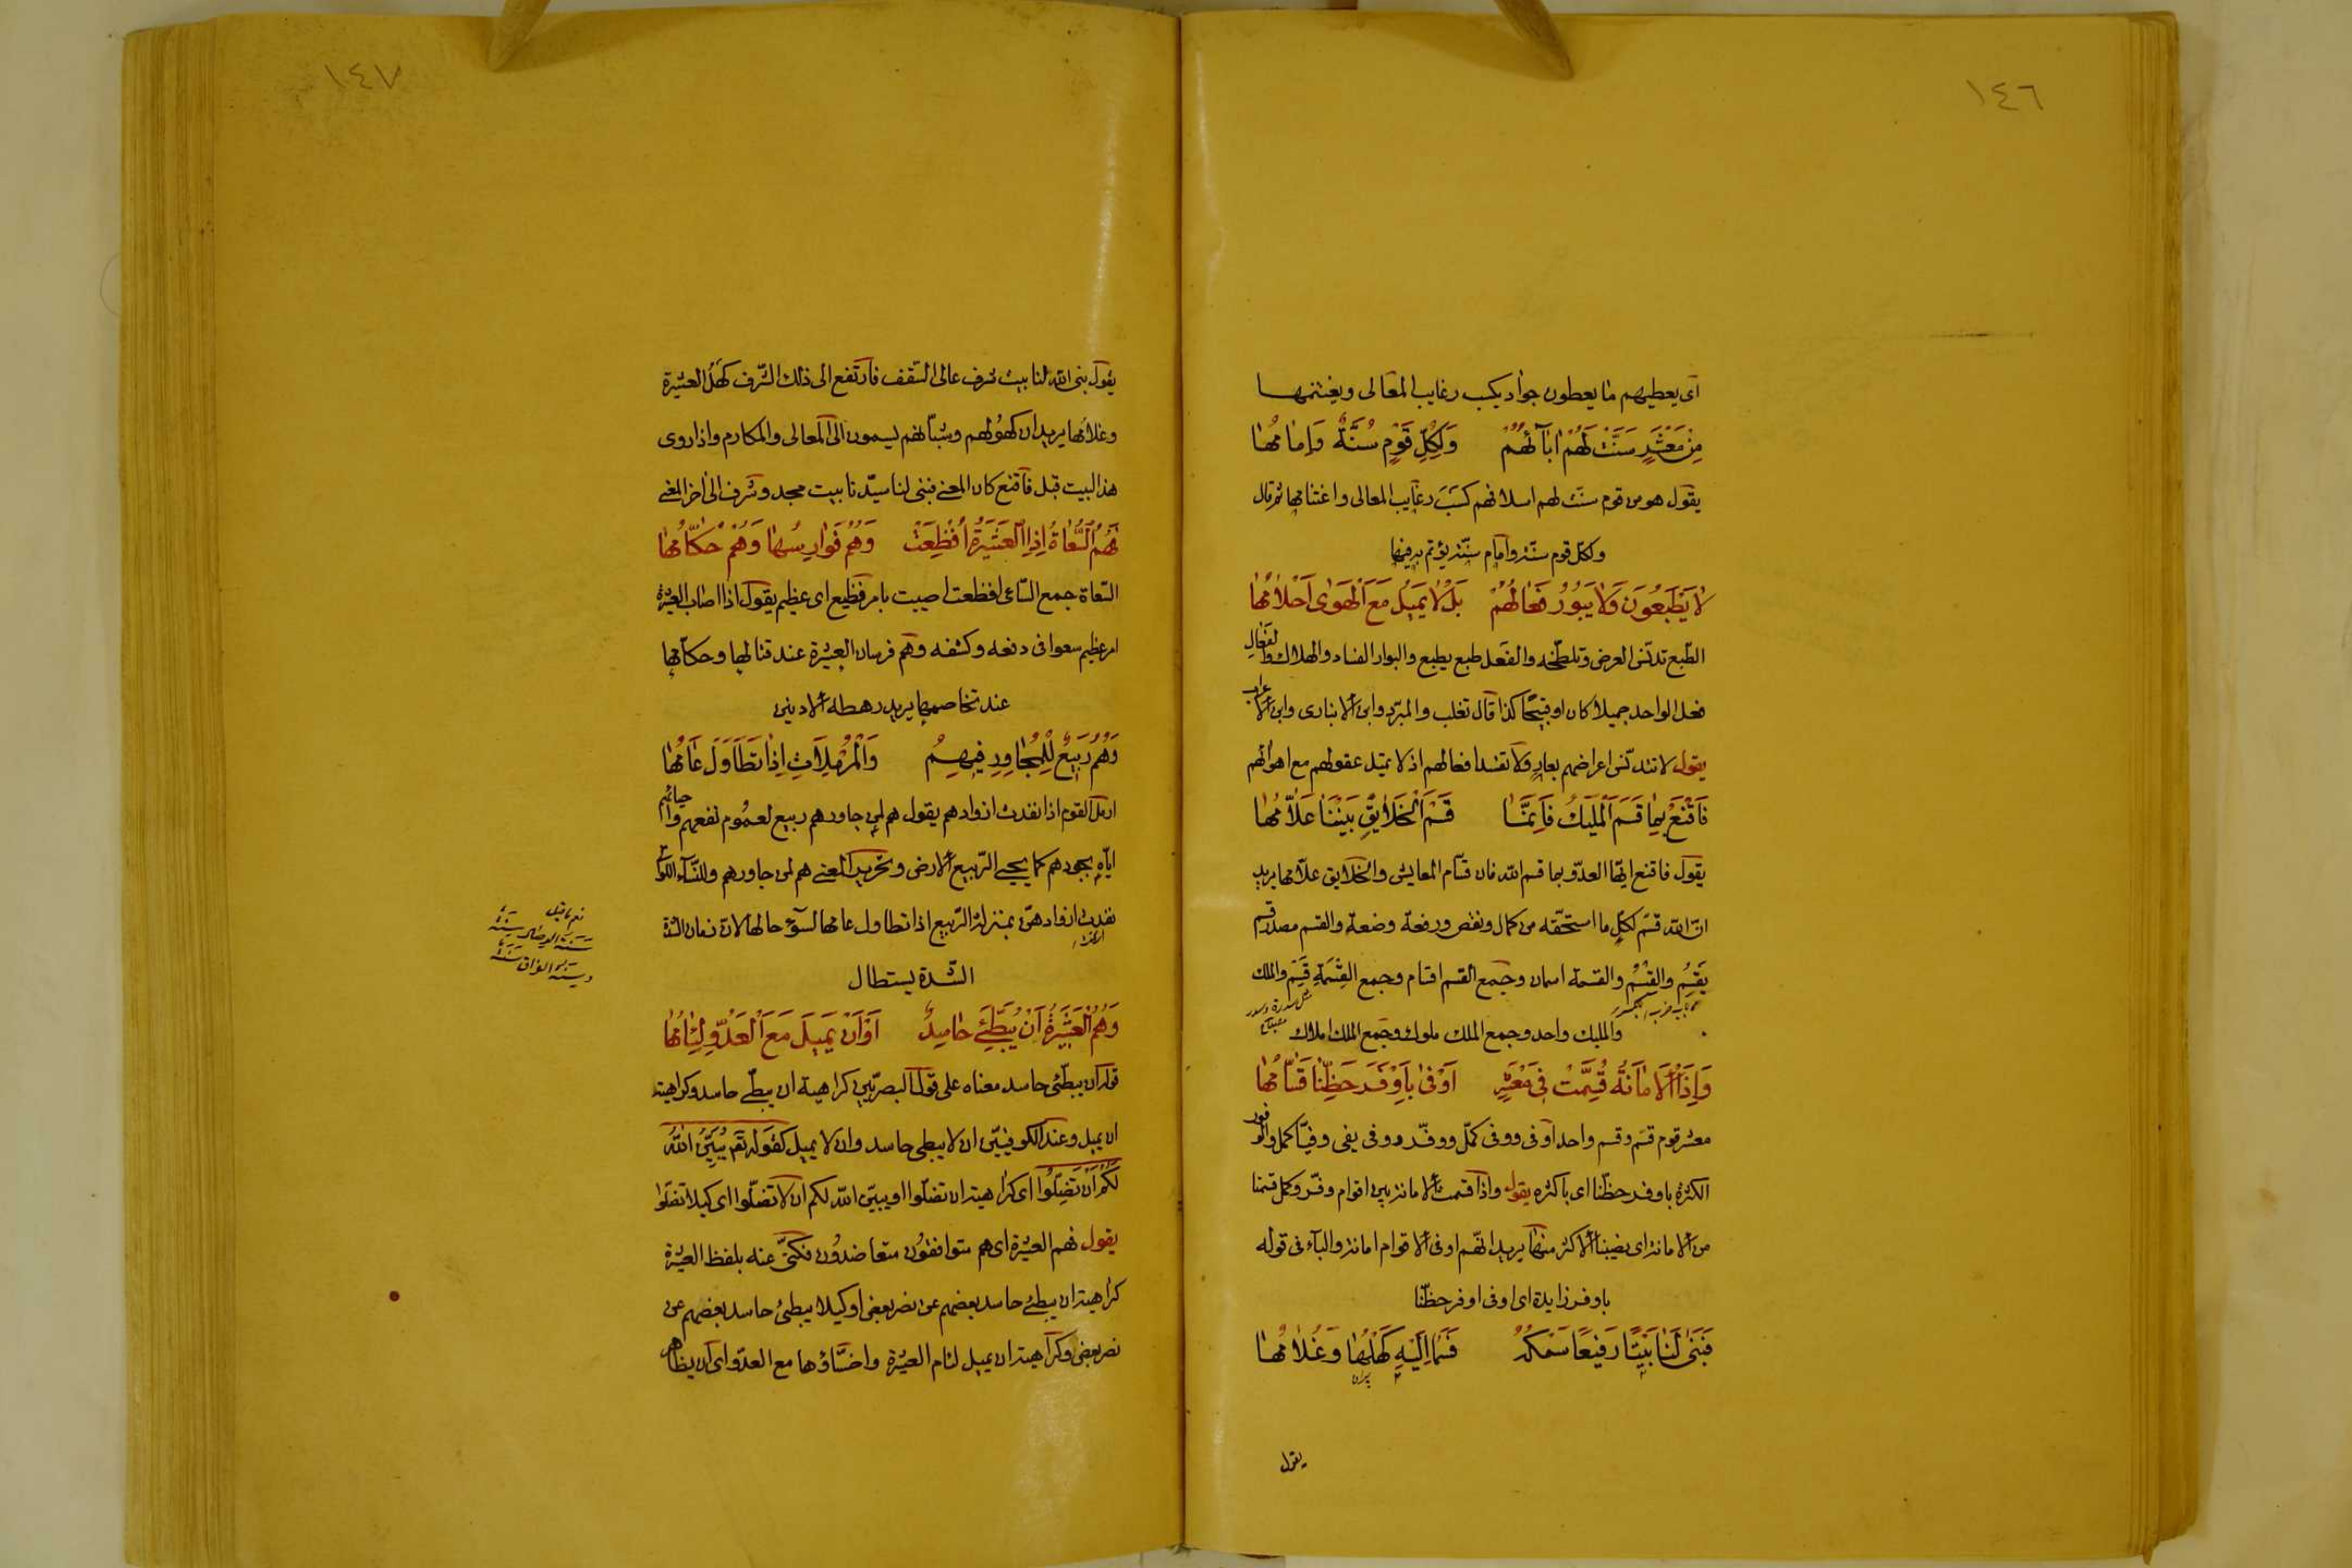 ١٤٦
اى يعطيهم ما يعطون جواد يكسب رغايب المعالى ويغتنمها
مِنْ مَعْشَرٍ سَنَّتْ لَهُمْ اٰبَآئُهُمْ وَلِكُلِّ قَوْمٍ سُنَّةٌ وَاِمٰامُهٰا
يقول هو من قوم سنّت لهم اسلافهم كسب رغايب المعالى واغتنامها ثم قال
ولكل قوم سنّة وامام سنّة يؤتم به فيها
لٰا يَطْبَعُونَ وَلٰا يَبُورُ فَعٰالُهُمْ بَلْ لٰا يَمِيلُ مَعَ الْهَوٰى اَحْلٰامُهٰا
الطّبع تدنّس العرض وتلطّخه والفعل طبع يطبع والبوار الفساد والهلاك والفعال
فعل الواحد جميلا كان او قبيحًا كذا قال ثعلب والمبرّد وابن الانبارى وابن الاعرابى
يقول لا تتدنّس اعراضهم بعار ولا تفسد افعالهم اذ لا تميل عقولهم مع اهوائهم
فَاقْنَعْ بِمٰا قَسَمَ الْمَلِيكُ فَاِنَّمٰا قَسَمَ الْخَلٰايِقَ بَيْنَنٰا عَلّٰامُهٰا
يقول فاقنع ايّها العدوّ بما قسم الله فان قسّام المعايش والخلايق علّامها يريد
انّ الله قسّم لكلّ ما استحقّه من كمال ونقص ورفعة وضعة والقسم مصدر قسم
يَقْسِمُ والقِسْمُ والقسمة اسمان وجمع القسم اقسام وجمع القِسْمَةِ قِسَمٌ والملك
والمليك واحد وجمع الملك ملوك وجمع الملك املاك
وَاِذَا الْاَمٰانَةُ قُسِّمَتْ فِى مَعْشَرٍ اَوْفىٰ بِاَوْفَرِ حَظِّنٰا قَسّٰامُهٰا
معشر قوم قسّم وقسم واحد اوفى ووفى كمّل ووفّر ووفى يفى وفيّا كمل والوفور
الكثرة باوفر حظّنا اى باكثره يقول واذا قسمت الامانة بين اقوام وفّر وكمل قسمنا
من الامانة اى نصيبنا الاكثر منها يريد انّهم اوفى الاقوام امانة والبآء فى قوله
باوفر زايدة اى اوفى اوفر حظّنا
فَبَنىٰ لَنٰا بَيْتًا رَفِيعًا سَمْكُهُ فَسَمٰا اِلَيْهِ كَهْلُهٰا وَغُلٰامُهٰا
يقول
١٤٧
يقول بنى الله لنا بيت شرف عالى السّقف فارتفع الى ذلك الشّرف كهل العشيرة
وغلامها يريد ان كهولهم وشبّانهم يسمون الى المعالى والمكارم واذا روى
هذا البيت قبل فاقنع كان المعنى فبنى لنا سيّدنا بيت مجد وشرف الى اخر المعنى
فَهُمُ السُّعٰاةُ اِذَا الْعَشِيرَةُ اُفْظِعَتْ وَهُمُ فَوٰارِسُهٰا وَهُمْ حُكّٰامُهٰا
السّعاة جمع السّاعى افظعت اصيبت بامر فظيع اى عظيم يقول اذا اصاب العشيرة
امر عظيم سعوا فى دفعه وكشفه وهم فرسان العشيرة عند قتالها وحكّامها
عند تخاصمها يريد رهطه الادنين
وَهُمُ رَبِيعٌ لِلْمُجٰاوِرِ فِيهِمُ وَالْمُرْمِلٰاتِ اِذٰا تَطٰاوَلَ عٰامُهٰا
ارمل القوم اذا نفدت ازوادهم يقول هم لمن جاورهم ربيع لعموم نفعهم واحيائهم
ايّاه بجودهم كما يحيى الرّبيع الارض وتحرير المعنى هم لمن جاورهم وللنّسآء اللواتى
نفدت ازوادهنّ بمنزلة الرّبيع اذا تطاول عامها لسوء حالها لانّ زمان الشّدة
الشّدة يستطال
وَهُمُ الْعَشِيرَةُ اَنْ يُبَطِّئَ حٰاسِدٌ اَوْ اَنْ يَمِيلَ مَعَ الْعَدُوِّ لِئٰامُهٰا
قوله ان يبطّئ حاسد معناه على قول البصريّين كراهية ان يبطّئ حاسد وكراهية
ان يميل وعند الكوفيّين ان لا يبطى حاسد وان لا يميل كقوله تع يُبَيِّنُ اللهُ
لَكُمْ اَنْ تَضِلُّوا اى كراهية ان تضلّوا او يبيّن الله لكم ان لا تضلّوا اى كيلا تضلّوا
يقول فهم العشيرة اى هم متوافقون متعاضدون فكنّى عنه بلفظ العشيرة
كراهية ان يبطئ حاسد بعضهم عن نصر بعض او كيلا يبطئ حاسد بعضهم عن
نصر بعض وكراهية ان يميل لئام العشيرة واخسّاؤها مع العدوّ اى ان يظاهر